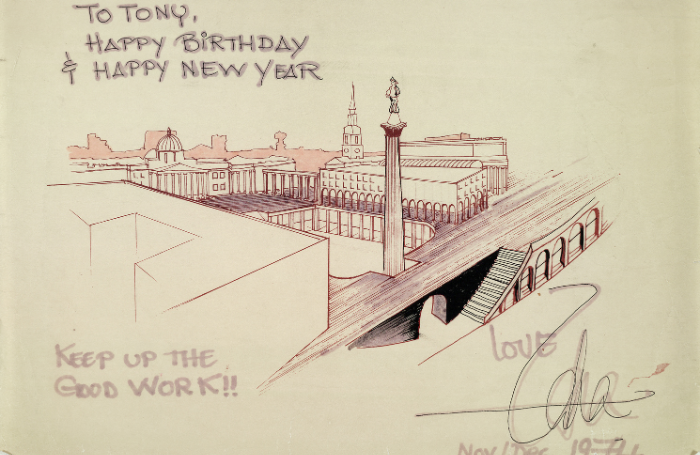 TO TONY,
HAPPY BIRTHDAY
& HAPPY NEW YEAR
KEEP UP THE
GOOD WORK!!
LOVE
NOV/DEC